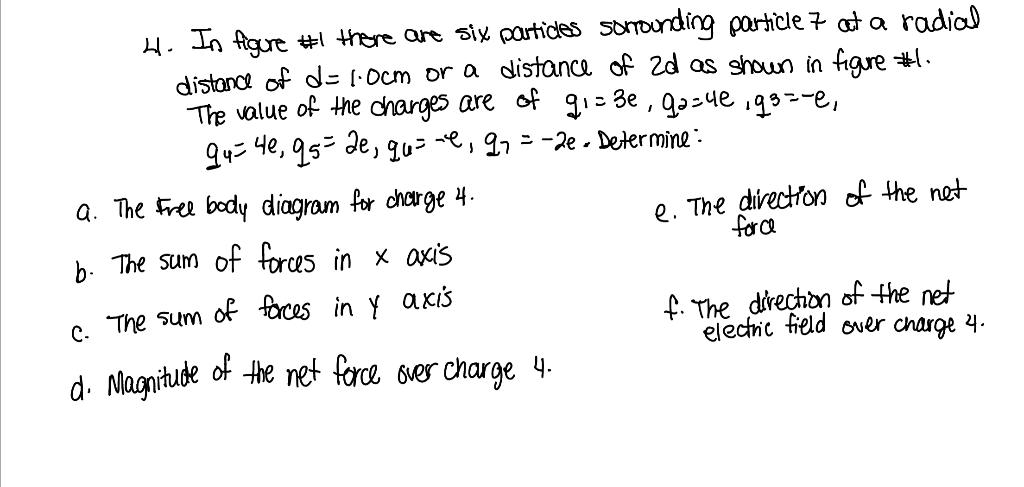 4. In figure #1 there are six particles sorrounding particle 7 at a radial
distance of d= 1.0cm or a distance of 2d as shown in figure #1.
The value of the charges are of q1=3e, q2=4e, q3=-e,
q4=4e, q5=2e, q6=-e, q7=-2e. Determine:
a. The Free body diagram for charge 4.
b. The sum of forces in x axis
c. The sum of forces in y axis
d. Magnitude of the net force over charge 4.
e. The direction of the net
force
f. The direction of the net
electric field over charge 4.